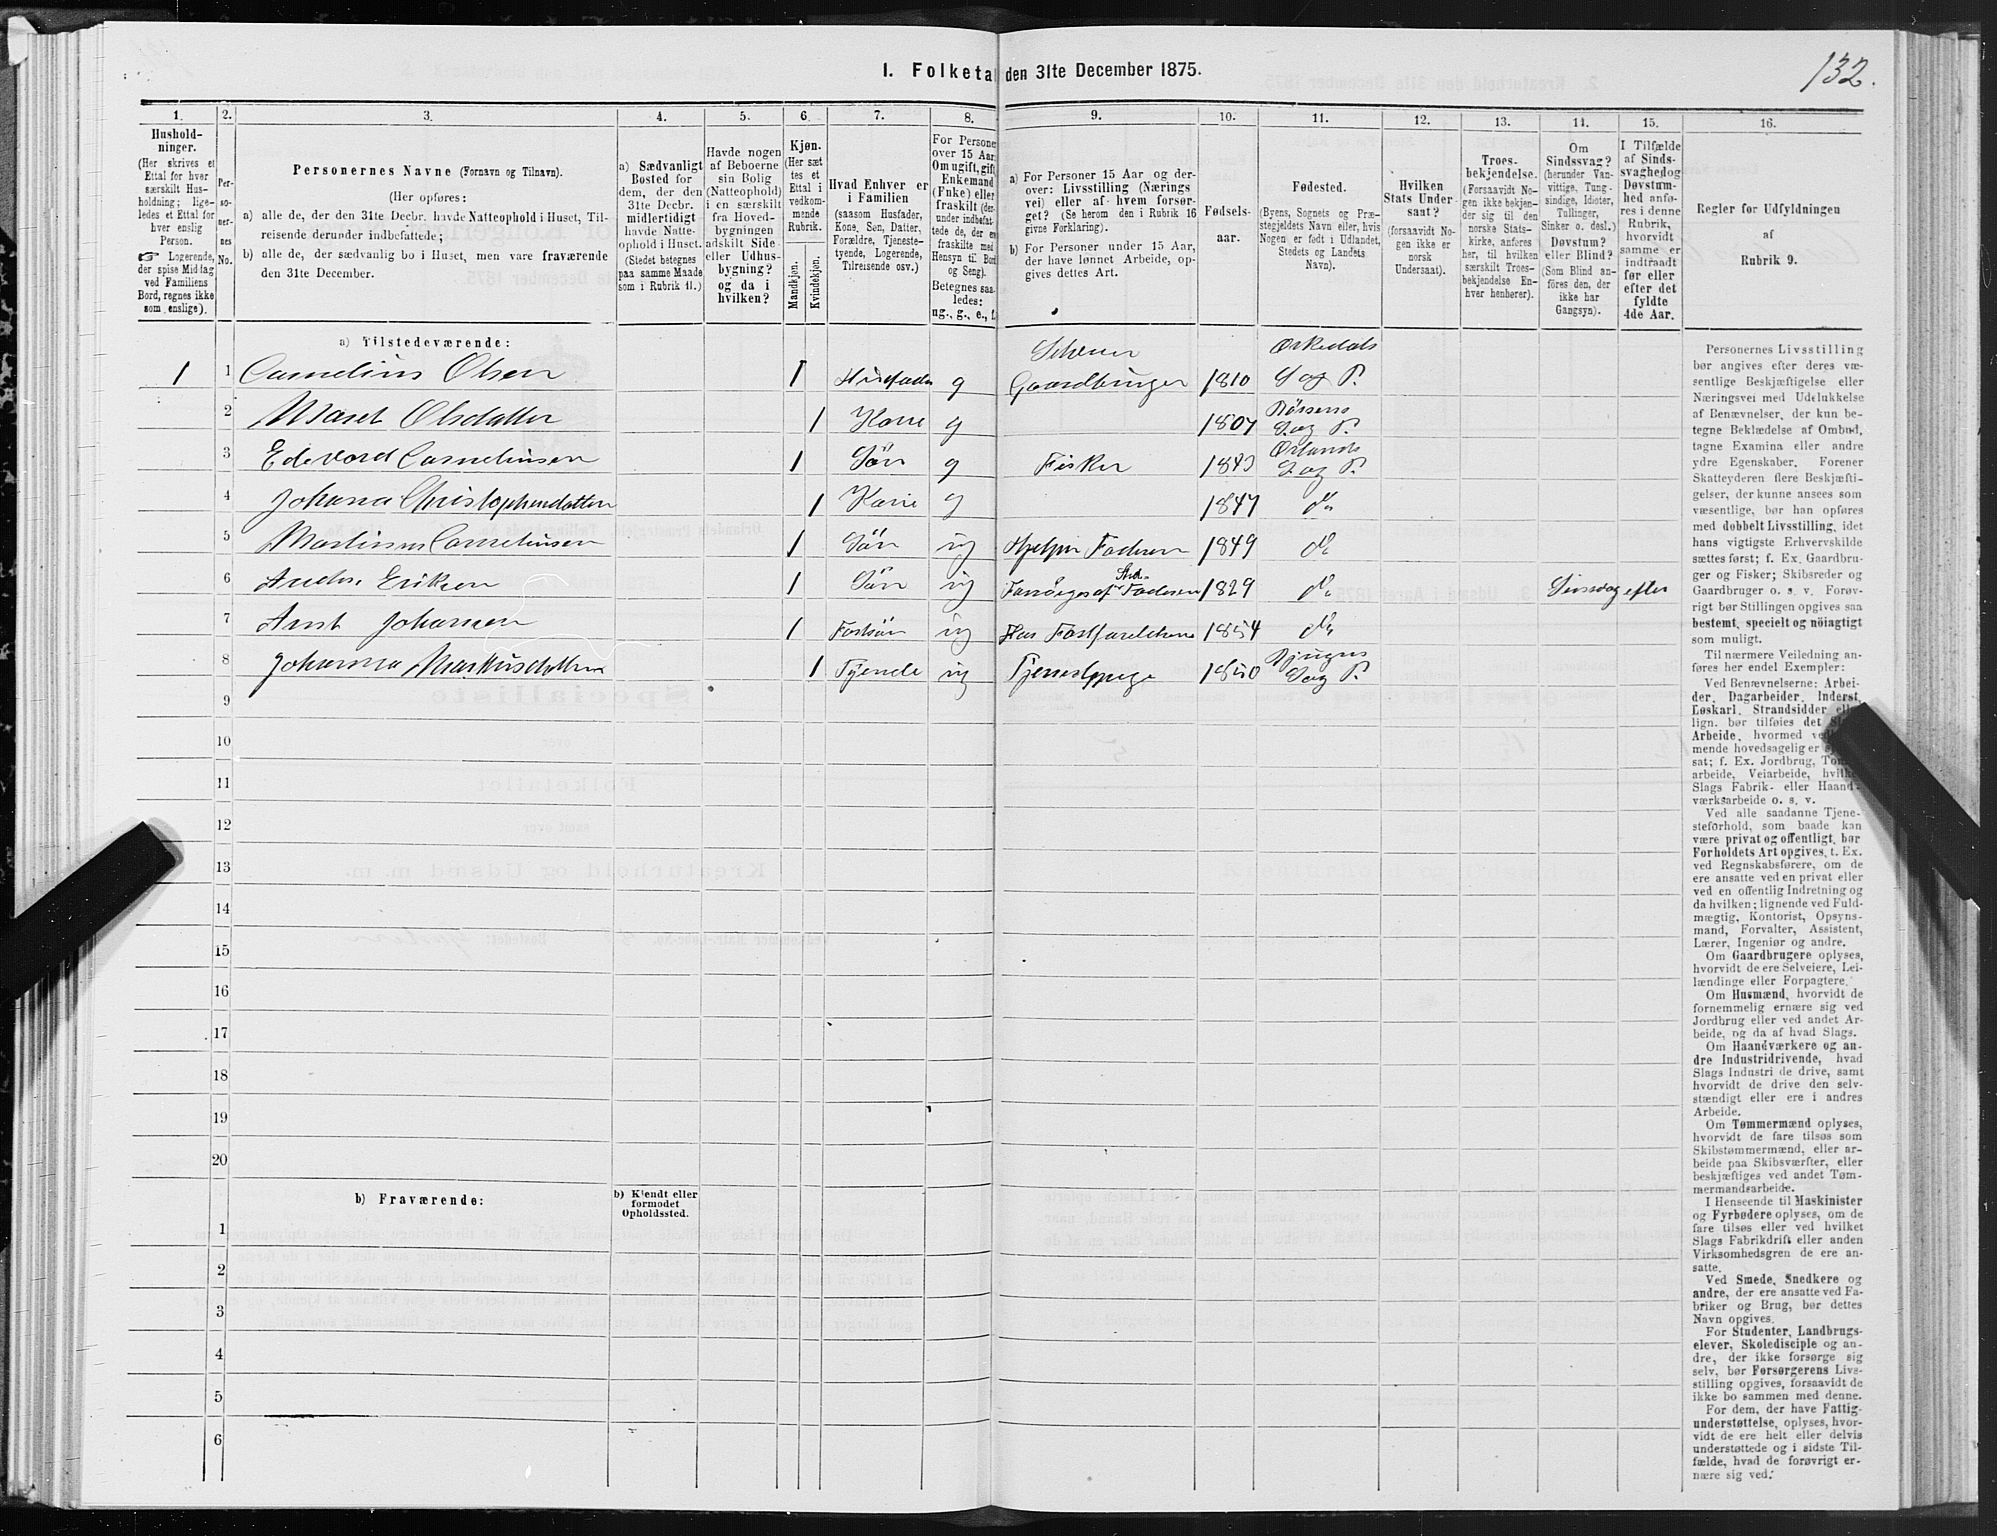 132.
I. Folketal den 31te December 1875.
1. 2. 3. 4. 5. 6. 7. 8. 9. 10. 11. 12. 13. 14. 15. 16.
Hushold-
ninger.
(Her skrives et
Ettal for hver
særskilt Hus-
holdning; lige-
ledes et Ettal for
hver enslig
Person.
☞ Logerende,
der spise Middag
ved Familiens
Bord, regnes ikke
som enslige).
Per-
so-
ner-
nes
No.
Personernes Navne (Fornavn og Tilnavn).
(Her opføres:
a) alle de, der den 31te Decbr. havde Natteophold i Huset, Til-
reisende derunder indbefattede;
b) alle de, der sædvanlig bo i Huset, men vare fraværende
den 31te December.
a) Sædvanligt
Bosted for
dem, der den
31te Decbr.
midlertidigt
havde Natte-
ophold i Huset.
(Stedet betegnes
paa samme Maade
som i Rubrik 11.)
Havde nogen
af Beboerne
sin Bolig
(Natteophold)
i en særskilt
fra Hoved-
bygningen
adskilt Side-
eller Udhus-
bygning?
og da i
hvilken?
Kjøn.
(Her sæt-
tes et
Ettal i
vedkom-
mende
Rubrik.
Mandkjøn.
Kvindekjøn.
Hvad Enhver er
i Familien
(saasom Husfader,
Kone, Søn, Datter,
Forældre, Tjeneste-
tyende, Logerende,
Tilreisende osv.)
For Personer
over 15 Aar:
Om ugift, gift,
Enkemand
(Enke) eller
fraskilt (der-
under indbefat-
tede de, der ere
fraskilte med
Hensyn til Bord
og Seng).
Betegnes saa-
ledes:
ug., g., e., f.
a) For Personer 15 Aar og der-
over: Livsstilling (Nærings-
vei) eller af hvem forsør-
get? (Se herom den i Rubrik 16
givne Forklaring).
b) For Personer under 15 Aar,
der have lønnet Arbeide, op-
gives dettes Art.
Fødsels-
aar.
Fødested.
(Byens, Sognets og Præ-
stegjeldets Navn eller, hvis
Nogen er født i Udlandet,
Stedets og Landets
Navn).
Hvilken
Stats Under-
saat?
(forsaavidt No-
gen ikke er
norsk
Undersaat).
Troes-
bekjendelse.
(Forsaavidt No-
gen ikke bekjen-
der sig til den
norske Stats-
kirke, anføres
her, til hvilken
særskilt Troes-
bekjendelse En-
hver henhører).
Om
Sindssvag?
(herunder Van-
vittige, Tung-
sindige, Idioter,
Tullinger,
Sinker o. desl.)
Døvstum?
eller Blind?
(Som Blind an-
føres den, der
ikke har
Gangsyn).
I Tilfælde
af Sinds-
svaghed og
Døvstum-
hed anfø-
res i denne
Rubrik,
hvorvidt
samme er
indtraadt
før eller
efter det
fyldte
4de Aar.
Regler for Udfyldningen
af
Rubrik 9.
a) Tilstedeværende:
1 1 Cornelius Olsen 1 Husfader g Gaardbruger 1810 Orkedals S og P.
2 Maret Olsdatter 1 Kone g 1807 S og P.
3 Edevard Corneliusen 1 Søn g Fisker 1843 Ørlands S og P.
4 Johanna Christophersdatter 1 Kone g 1847 do
5 Martinus Corneliusen 1 Søn ug Hjelper Faderen 1849 do
6 Anders Eriksen 1 Søn ug Forsørges af Sted- Faderen 1829 do Sinssvag efter
7 Arnt Johansen 1 Fostsøn ug Hos Fostforeldrene 1854 do
8 Johanna Markusdatter 1 Tjende ug Tjenestepige 1850 Bjugns S og P.
9
10
11
12
13
14
15
16
17
18
19
20
b) Fraværende:
b) Kjendt eller
formodet
Opholdssted.
1
2
3
4
5
6
Personernes Livsstilling
bør angives efter deres væ-
sentlige Beskjæftigelse eller
Næringsvei med Udelukkelse
af Benævnelser, der kun be-
tegne Beklædelse af Ombud,
tagne Examina eller andre
ydre Egenskaber. Forener
Skatteyderen flere Beskjæfti-
gelser, der kunne ansees som
væsentlige, bør han opføres
med dobbelt Livsstilling, idet
hans vigtigste Erhvervskilde
sættes først; f. Ex. Gaardbru-
ger og Fisker; Skibsreder og
Gaardbruger o. s. v. Forøv-
rigt bør Stillingen opgives saa
bestemt, specielt og nöiagtigt
som muligt.
Til nærmere Veiledning an-
føres her endel Exempler:
Ved Benævnelserne: Arbei-
der, Dagarbeider, Inderst,
Løskarl, Strandsidder eller
lign. bør tilføies det Slags
Arbeide, hvormed vedkom-
mende hovedsagelig er syssel-
sat; f. Ex. Jordbrug, Tomte-
arbeide, Veiarbeide, hvilket
Slags Fabrik- eller Haand-
værksarbeide o. s. v.
Ved alle saadanne Tjene-
steforhold, som baade kan
være privat og offentligt, bør
Forholdets Art opgives, f. Ex.
ved Regnskabsførere, om de
ere ansatte ved en privat eller
ved en offentlig Indretning og
da hvilken; lignende ved Fuld-
mægtig, Kontorist, Opsyns-
mand, Forvalter, Assistent,
Lærer, Ingeniør og andre.
Om Gaardbrugere oplyses,
hvorvidt de ere Selveiere, Lei-
lændinge eller Forpagtere.
Om Husmænd, hvorvidt de
fornemmelig ernære sig ved
Jordbrug eller ved andet Ar-
beide, og da af hvad Slags.
Om Haandværkere og an-
dre Industridrivende, hvad
Slags Industri de drive, samt
hvorvidt de drive den selv-
stændigt eller ere i andres
Arbeide.
Om Tømmermænd oplyses,
hvorvidt de fare tilsøs som
Skibstømmermænd, eller ar-
beide paa Skibsværfter, eller
beskjæftiges ved andet Tøm-
mermandsarbeide.
I Henseende til Maskinister
og Fyrbødere oplyses, om de
fare tilsøs eller ved hvilket
Slags Fabrikdrift eller anden
Virksomhedsgren de ere an-
satte.
Ved Smede, Snedkere og
andre, der ere ansatte ved Fa-
briker og Brug, bør dettes
Navn opgives.
For Studenter, Landbrugs-
elever, Skoledisciple og an-
dre, der ikke forsørge sig
selv, bør Forsørgerens Livs-
stilling opgives, forsaavidt de
ikke bo sammen med denne.
For dem, der have Fattig-
understøttelse, oplyses, hvor-
vidt de ere helt eller delvis
understøttede og i sidste Til-
fælde, hvad de forøvrigt er-
nære sig ved.